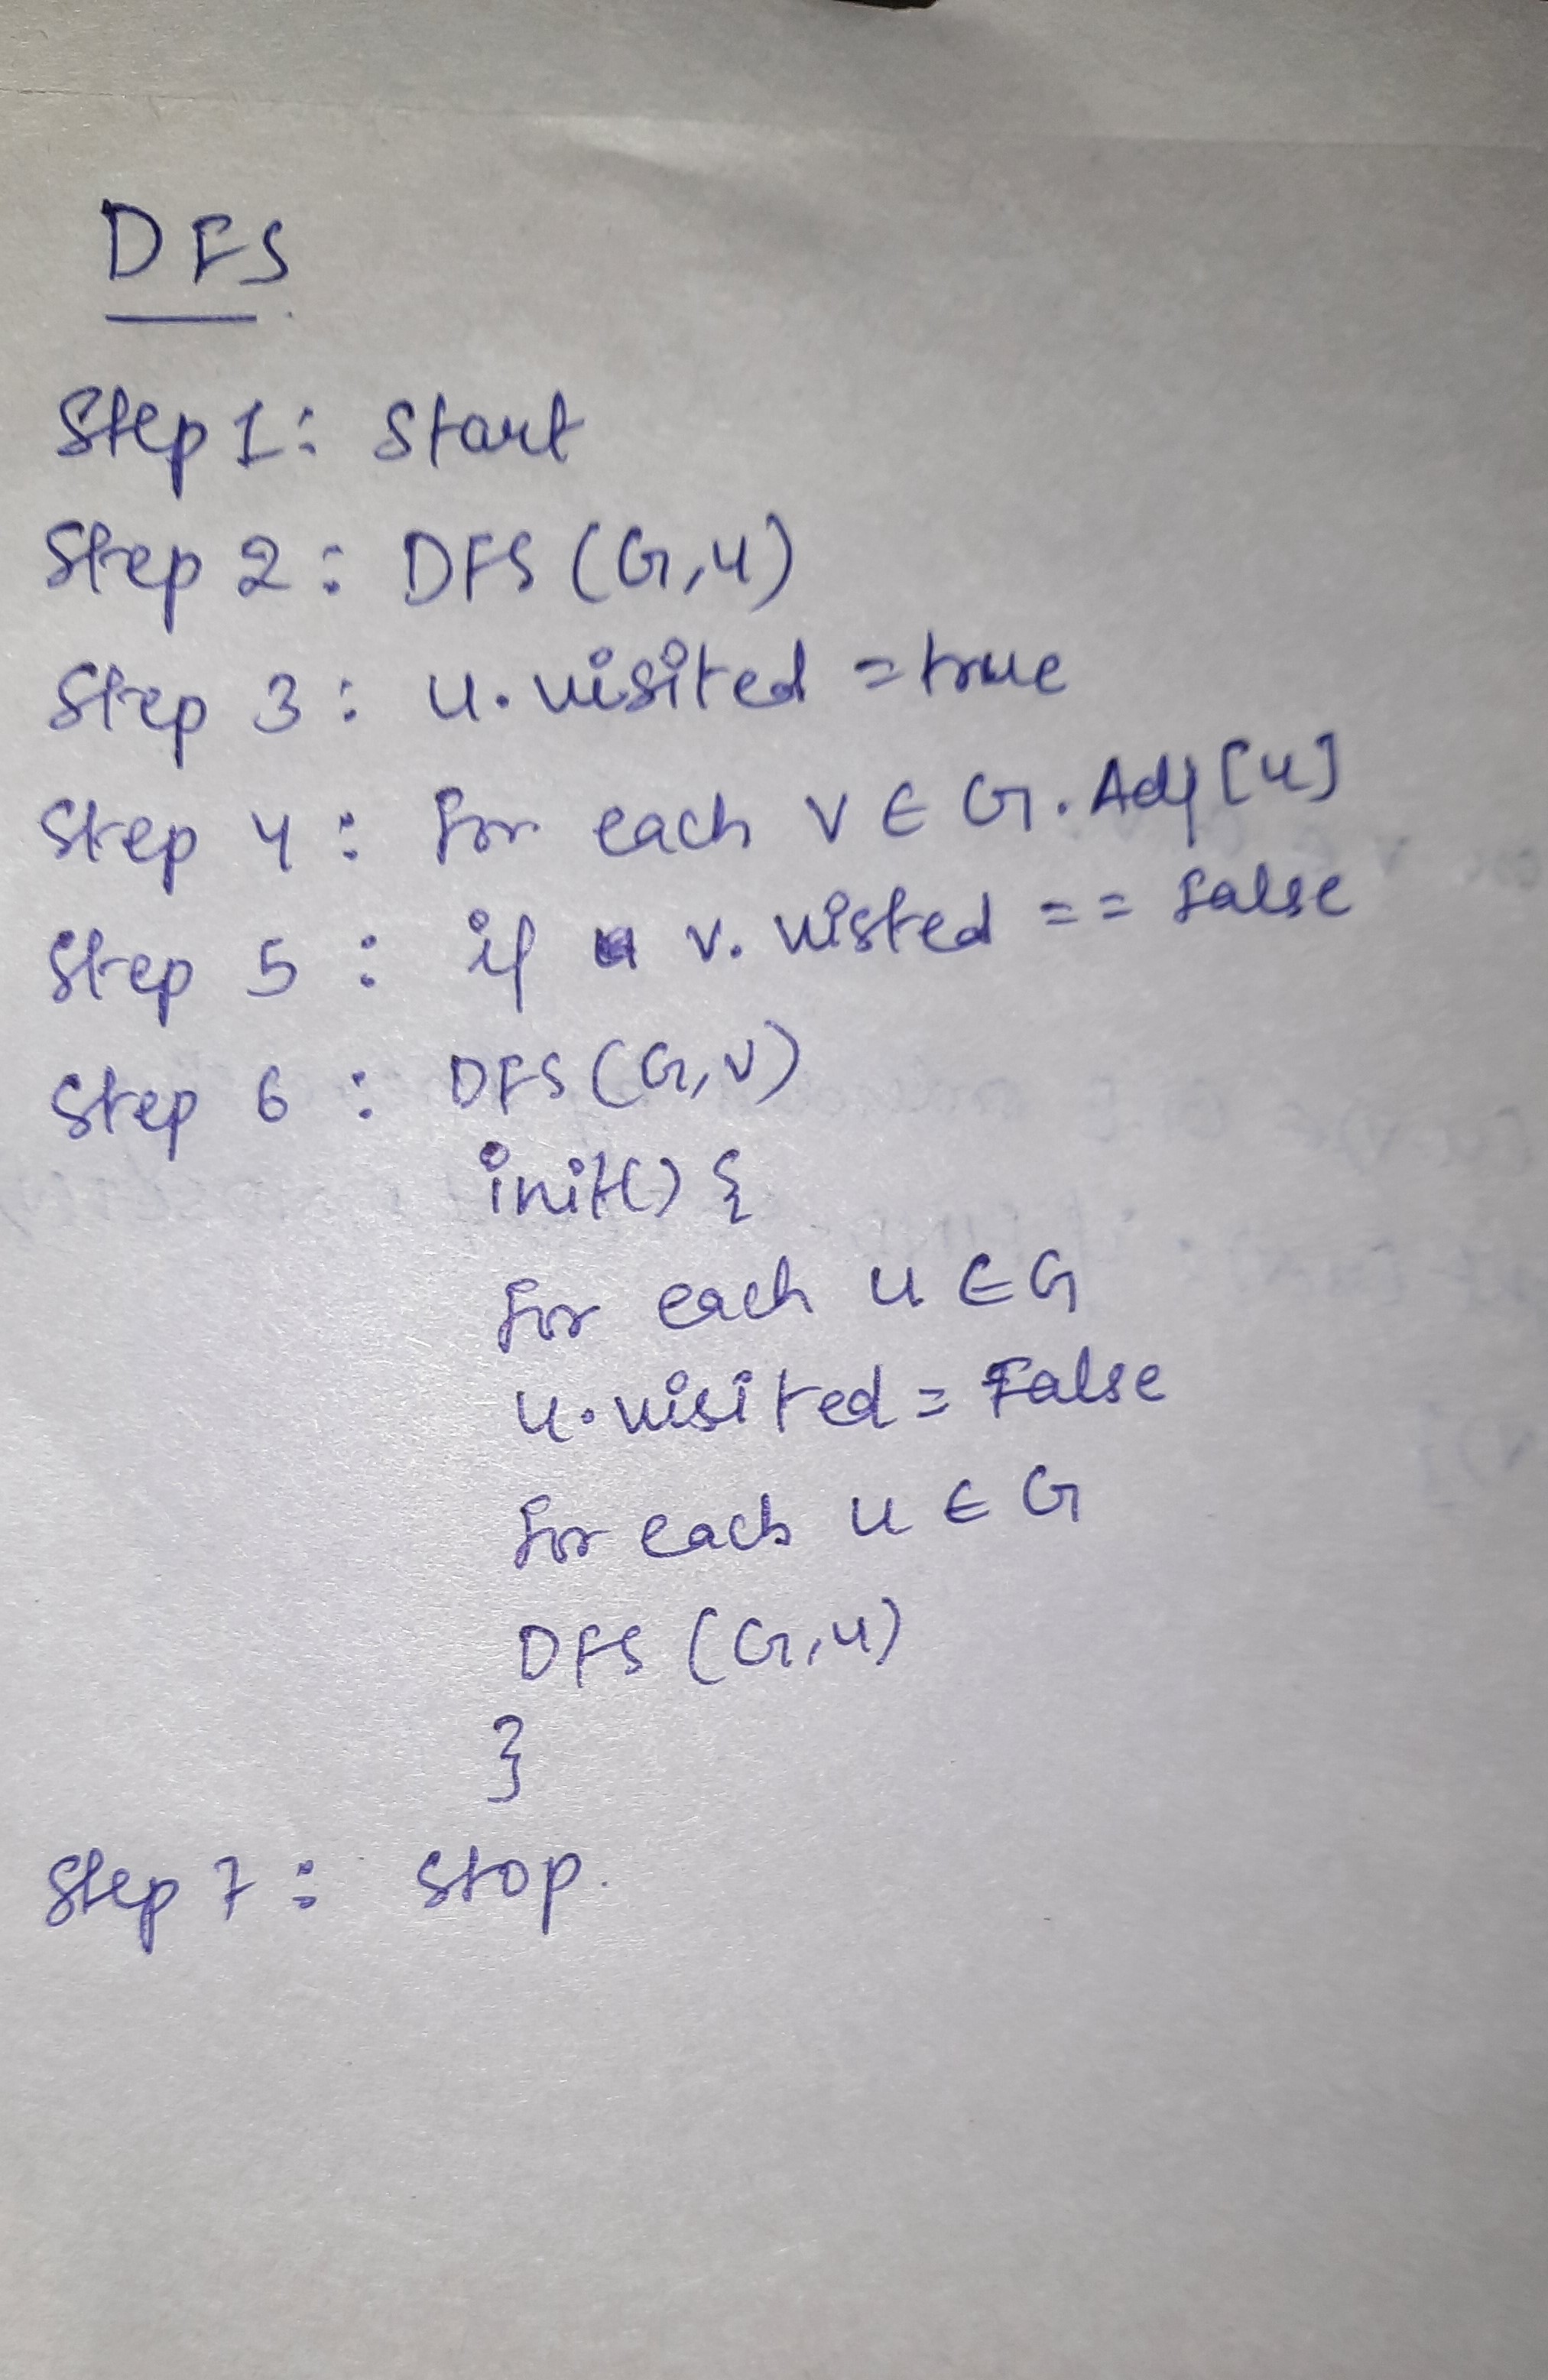 DFS
Step 1: Start
Step 2: DFS (G,u)
Step 3: u.visited = true
Step 4: for each v ∈ G.Adj[u]
Step 5: if v.visted == false
Step 6: DFS(G,v)
init() {
for each u ∈ G
u.visited = False
for each u ∈ G
DFS (G,u)
}
Step 7: Stop.